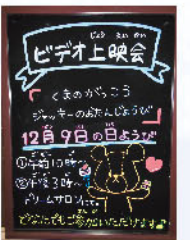 じょう えい かい
ビデオ上映会
くまのがっこう
ジャッキーのおたんじょうび
12月9日の日ようび
①午前10時〜
②午後3時〜
ドリームサロンにて
どなたでもご参加いただけます